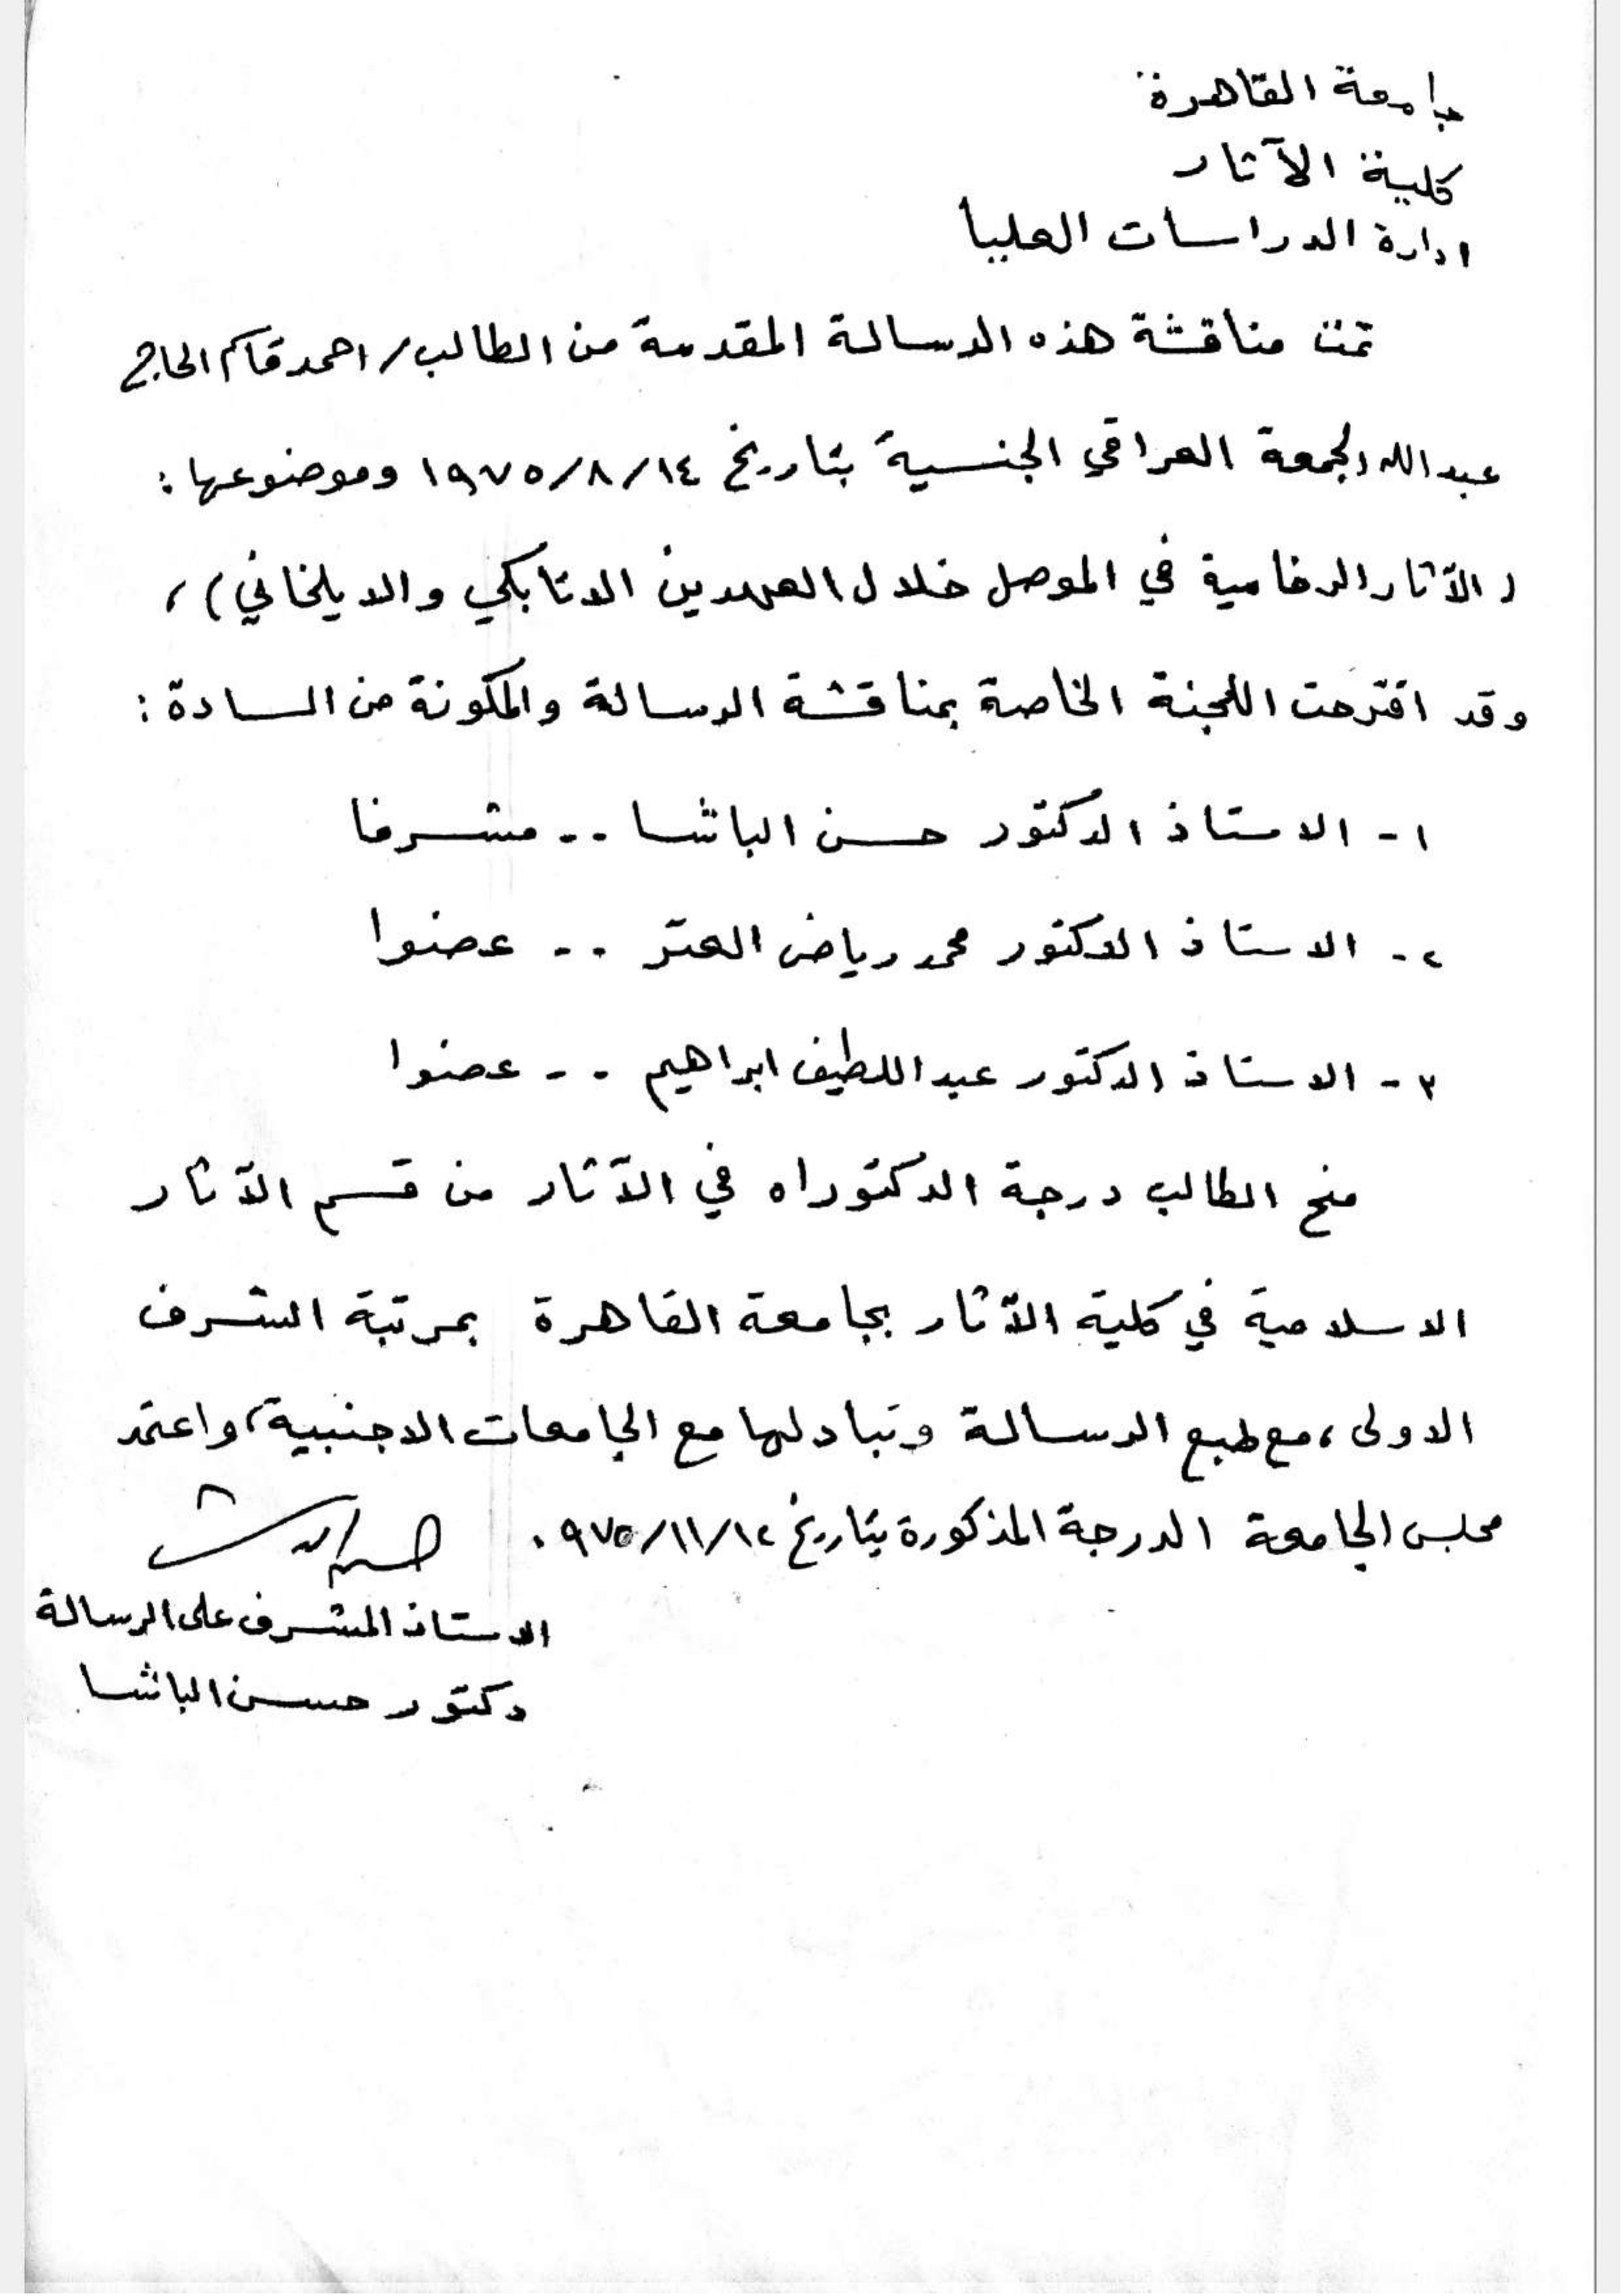 جامعة القاهرة
كلية الآثار
ادارة الدراسات العليا
تمت مناقشة هذه الرسالة المقدمة من الطالب/ احمد قاسم الحاج
عبدالله الجمعة العراقي الجنسية بتاريخ ١٩٧٥/٨/١٤ وموضوعها :
( الآثار الرخامية في الموصل خلال العهدين الاتابكي والايلخاني) ،
وقد اقترحت اللجنة الخاصة بمناقشة الرسالة والمكونة من السادة :
١ - الاستاذ الدكتور حسن الباشا .. مشرفا
٢ - الاستاذ الدكتور محمد رياض العتر .. عضوا
٣ - الاستاذ الدكتور عبد اللطيف ابراهيم .. عضوا
منح الطالب درجة الدكتوراه في الآثار من قسم الآثار
الاسلامية في كلية الآثار بجامعة القاهرة بمرتبة الشرف
الاولى ، مع طبع الرسالة وتبادلها مع الجامعات الاجنبية ، واعتمد
مجلس الجامعة الدرجة المذكورة بتاريخ ٩٧٥/١١/١٢ .
الاستاذ المشرف على الرسالة
دكتور حسن الباشا